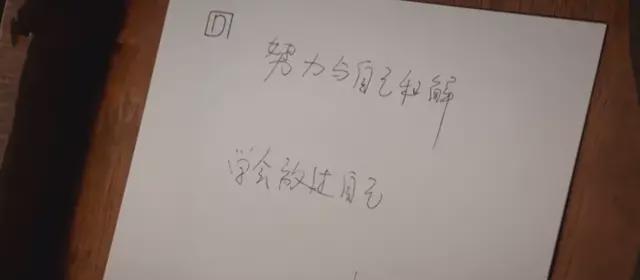 D
努力与自己和解
学会放过自己